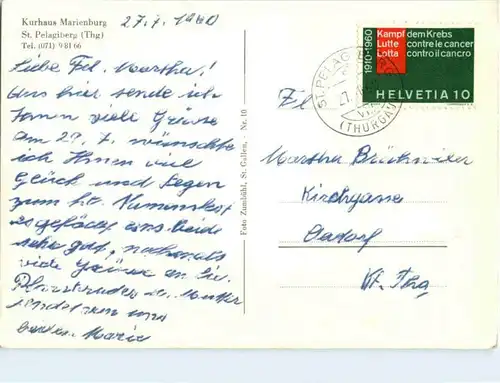 Kurhaus Marienburg
St. Pelagiberg (Thg)
Tel. (071) 9 81 66
27. 7. 1960
Liebe Frl. Martha!
Aus hier sende ich
Ihnen viele Grüsse
am 29. 7. wünschte
ich Ihnen viel
Glück und Segen
zum hl. Namensfest
es gefällt uns beide
sehr gut, nochmals
viele Grüsse an Sie
von uns
Marie
Foto Zumbühl, St. Gallen, Nr. 10
1910-1960
Kampf dem Krebs
Lutte contre le cancer
Lotta contro il cancro
HELVETIA 10
ST. PELAGIBERG
(THURGAU)
Frl.
Martha Brückwiler
Kirchgasse
Aadorf
Kt. Thg